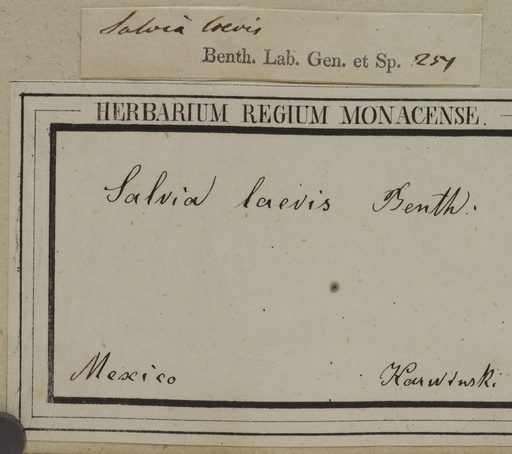 Salvia laevis
Benth. Lab. Gen. et Sp. 251
HERBARIUM REGIUM MONACENSE.
Salvia laevis Benth.
Mexico Karwinski.